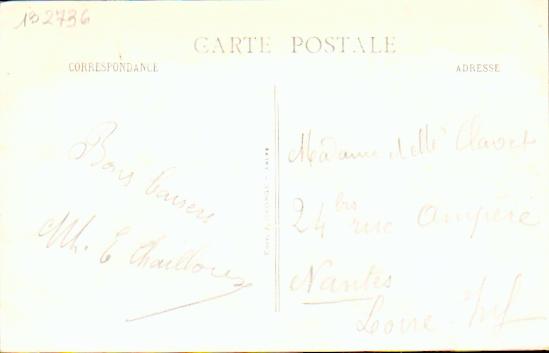 192736
CARTE POSTALE
CORRESPONDANCE
ADRESSE
Bons baisers
Madame & Mr Clavet
24 bis rue Ampère
Nantes
Loire-Inf